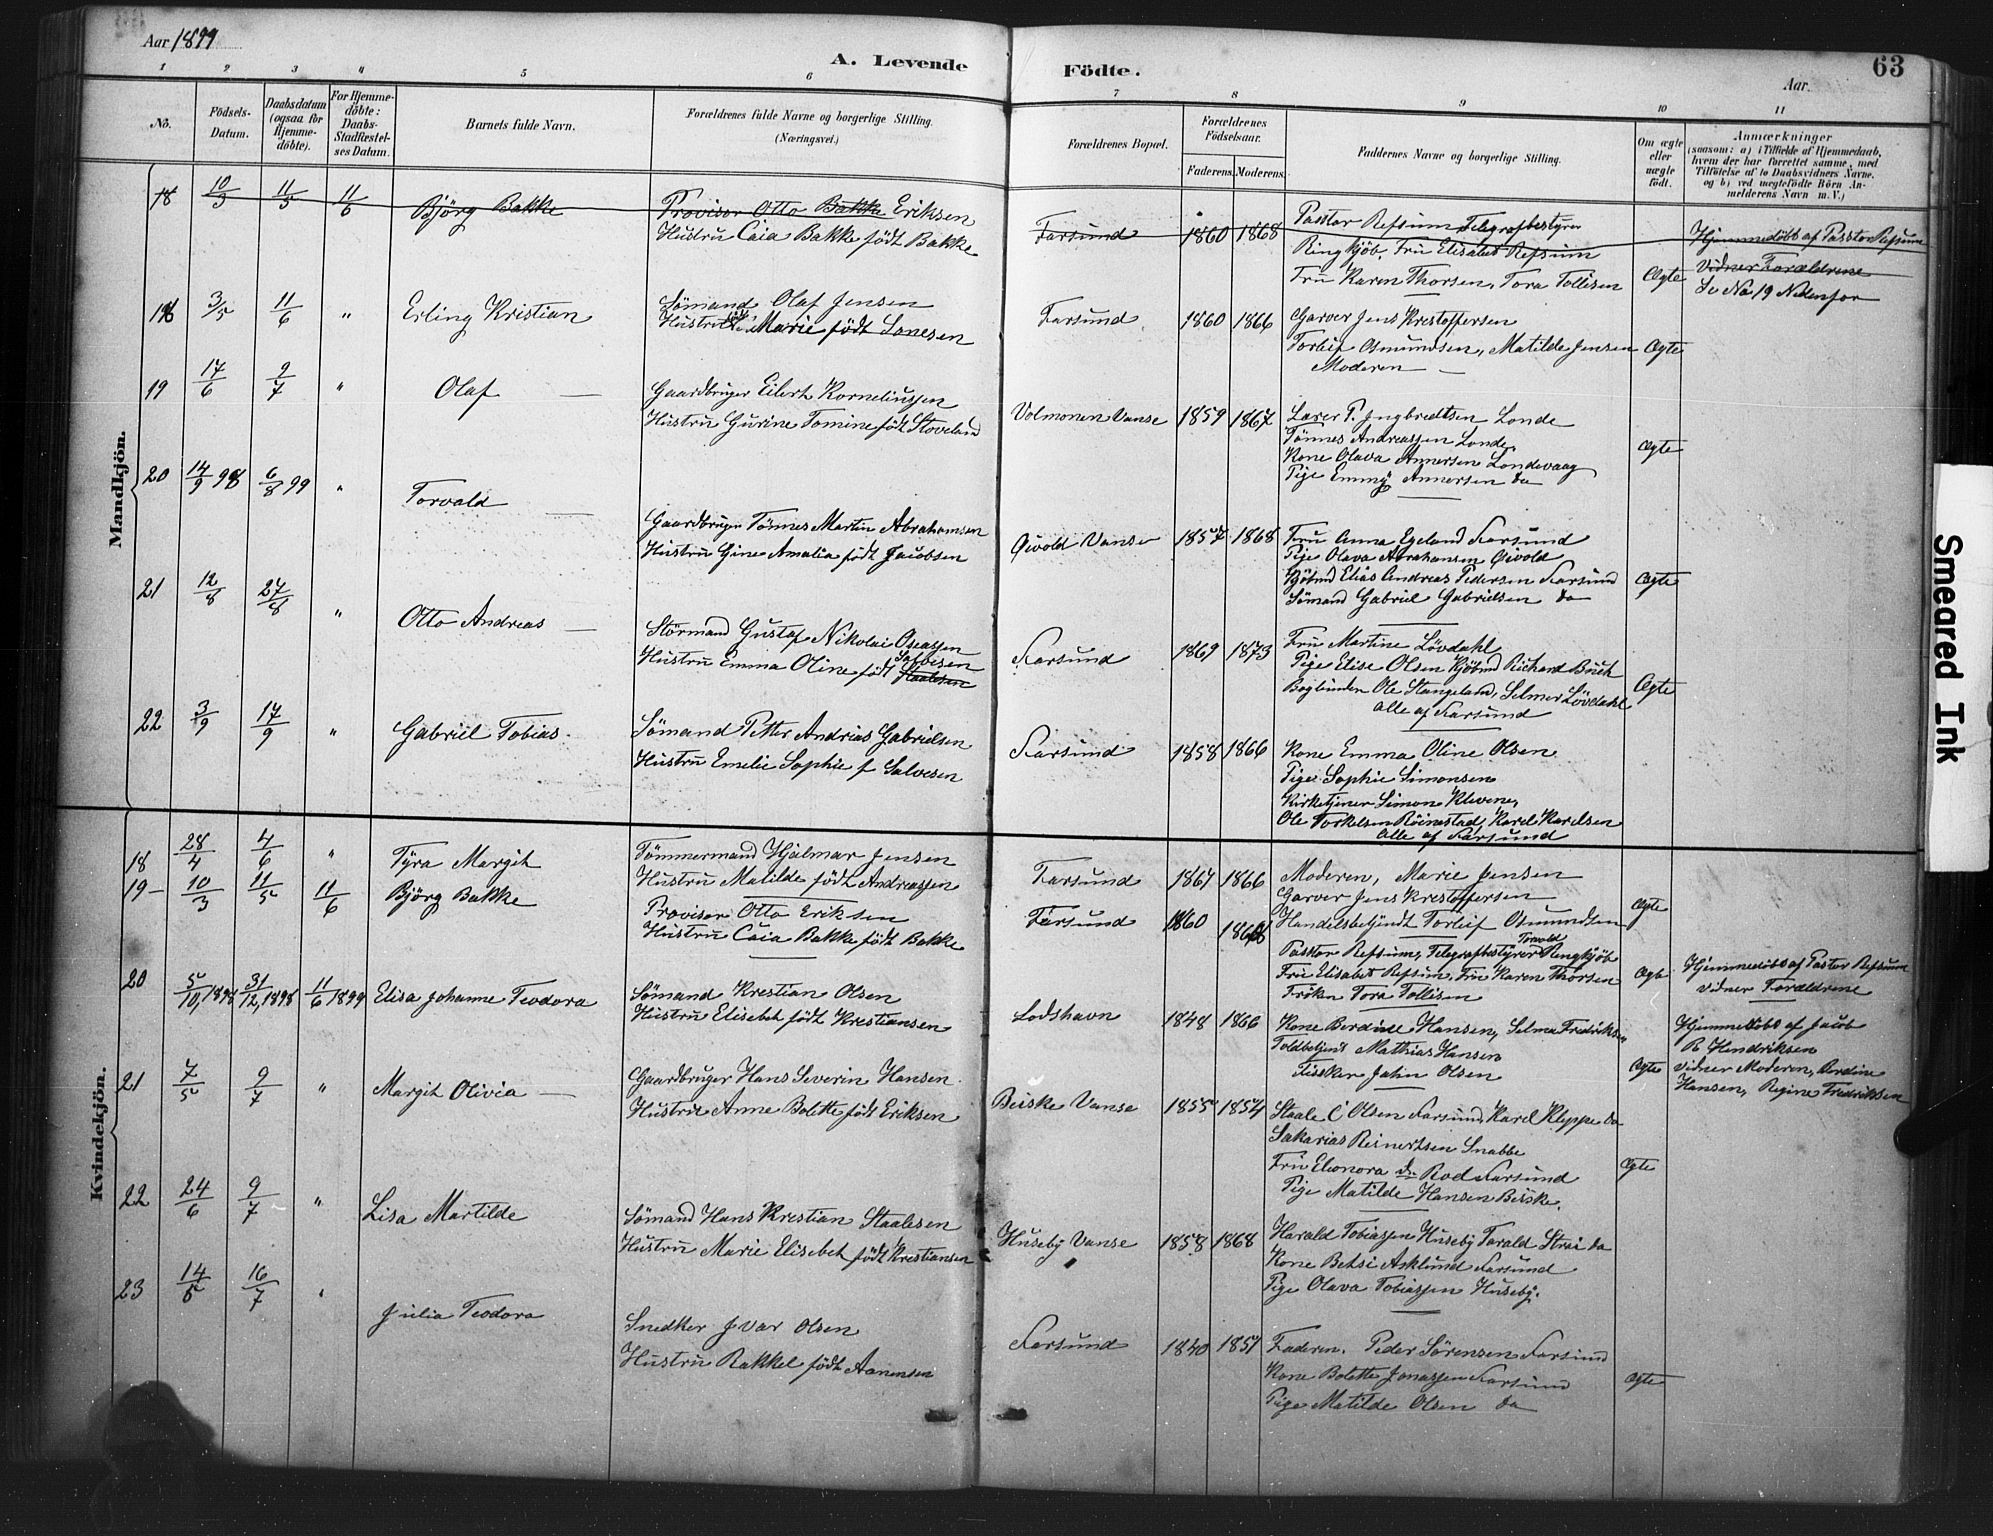 Aar 1899
A. Levende Födte.
63
Aar.
1 2 3 4 5 6 7 8 9 10 11
No.
Födsels-Datum.
Daabsdatum (ogsaa for Hjemmedöbte).
For Hjemmedöbte: Daabs-Stadfæstelses Datum.
Barnets fulde Navn.
Forældrenes fulde Navne og borgerlige Stilling. (Næringsvei.)
Forældrenes Bopæl.
Forældrenes Födselsaar.
Faderens. Moderens.
Faddernes Navne og borgerlige Stilling.
Om ægte eller uægte födt.
Anmærkninger
(saasom: a) i Tilfælde af Hjemmedaab, hvem der har forrettet samme, med Tilföielse af to Daabsvidners Navne, og b) ved uægtefödte Börn Anmelderens Navn m. V.)
Mandkjön.
18 10/3 11/5 11/6 Björg Bakke
Provisor Otto Bakke Eriksen
Hustru Caia Bakke født Bakke
Farsund 1860 1868
Pastor Refsum, Telegrafbestyrer
Ringkjöb, Fru Elisabet Refsum
Fru Karen Thorsen, Tora Tollisen
Ægte
Hjemmedöbt af Pastor Refsum
Vidner Forældrene
Se No 19 Nedenfor
18 3/5 11/6 " Erling Kristian
Sömand Olaf Jensen
Hustru Marie født Lanesen
Farsund 1860 1866
Garver Jens Krestoffersen
Torleif Osmundsen, Matilde Jensen
Moderen
Ægte
19 17/6 2/7 " Olaf
Gaardbruger Eilert Korneliussen
Hustru Gurine Tomine født Stoveland
Volmonen Vanse 1859 1867
Lærer P. Ingbredtsen Londe
Tönnes Andreassen Londe
Kone Olava Annersen Londevaag
Pige Emmy Annersen do
Ægte
20 14/9 98 6/8 99 " Torvald
Gaardbruger Tönnes Martin Abrahamsen
Hustru Gine Amalia født Jacobsen
Qivold Vanse 1857 1868
Fru Anna Egeland Farsund
Pige Olava Abrahamsen Qivold
Kjöbmd Elias Andreas Pedersen Farsund
Sömand Gabriel Gabrielsen do
Ægte
21 12/8 27/8 " Otto Andreas
Störmand Gustaf Nikolai Oseassen
Hustru Emma Oline født Staalesen Salvesen
Farsund 1869 1873
Fru Martine Lövdahl
Pige Elise Olsen Kjöbmd Richard Buch
Bogbinder Ole Stangeland, Selmer Lövdahl
Alle af Farsund
Ægte
22 3/9 17/9 " Gabriel Tobias
Sömand Petter Andrias Gabrielsen
Hustru Emelie Sophie f Salvesen
Farsund 1858 1866
Kone Emma Oline Olsen
Pige Sophie Simonsen
Kirketjener Simon Klevene,
Ole Torkelsen Röinestad, Karel Karelsen
Alle af Farsund
Kvindekjön.
18 28/4 4/6 " Tyra Margit
Tömmermand Hjalmar Jensen
Hustru Matilde født Andreassen
Farsund 1867 1866
Moderen, Marie Jensen
Garver Jens Krestoffersen
Handelsbetjendt Torleif Osmundsen
Ægte
19 10/3 11/5 11/6 Björg Bakke
Provisor Otto Eriksen
Hustru Caia Bakke født Bakke
Farsund 1860 1868
Pastor Refsum, Telegrafbestyrer Torvald Ringkjöb
Fru Elisabet Refsum, Fru Karen Thorsen
Frøken Tora Tollisen
Ægte
Hjemmedöbt af Pastor Refsum
Vidner Forældrene
20 5/10, 1898 31/12, 1898 11/6 1899 Elisa Johanne Teodora
Sömand Krestian Olsen
Hustru Elisebet født Krestiansen
Lodshavn 1848 1866
Kone Berdine Hansen, Selma Fredriksen
Toldbetjent Mathias Hansen
Fisker John Olsen
Ægte
Hjemmedöbt af Jacob
B Hendriksen
vidner Moderen, Berdine
Hansen, Regine Fredriksen
21 7/5 9/7 " Margit Olivia
Gaardbruger Hans Severin Hansen
Hustru Anne Bolette født Eriksen
Beiske Vanse 1855 1854
Staale C Olsen Farsund, Karel Kleppe do
Sakarias Reinertsen Snabbe
Fru Eleonora de Rod Farsund
Pige Matilde Hansen Beiske.
Ægte
22 24/6 9/7 " Lisa Martilde
Sömand Hans Krestian Staalesen
Hustru Marie Elisebet født Krestiansen
Huseby Vanse 1858 1868
Harald Tobiassen Huseby Tarald Strai do
Kone Betsi Asklund Farsund
Pige Olava Tobiassen Huseby.
23 14/5 16/7 " Julia Teodora
Snedker Ivar Olsen
Hustru Rakkel født Aanensen
Farsund 1840 1851
Faderen. Peder Sörensen Farsund
Kone Bolette Jonassen Farsund
Pige Matilde Olsen do
Ægte
Smeared Ink